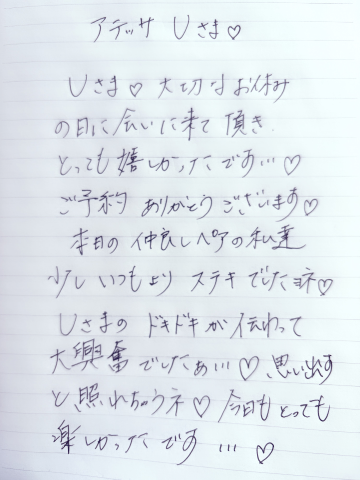 アデッサ Uさま♡
Uさま♡ 大切なお休み
の日に会いに来て頂き
とっても嬉しかったです…♡
ご予約 ありがとうございます♡
本日の仲良しペアの私達
少しいつもより ステキでしたヨネ♡
Uさまの ドキドキが伝わって
大興奮でしたぁ…♡ 思い出す
と、照れちゃうネ♡ 今日もとっても
楽しかったです …♡